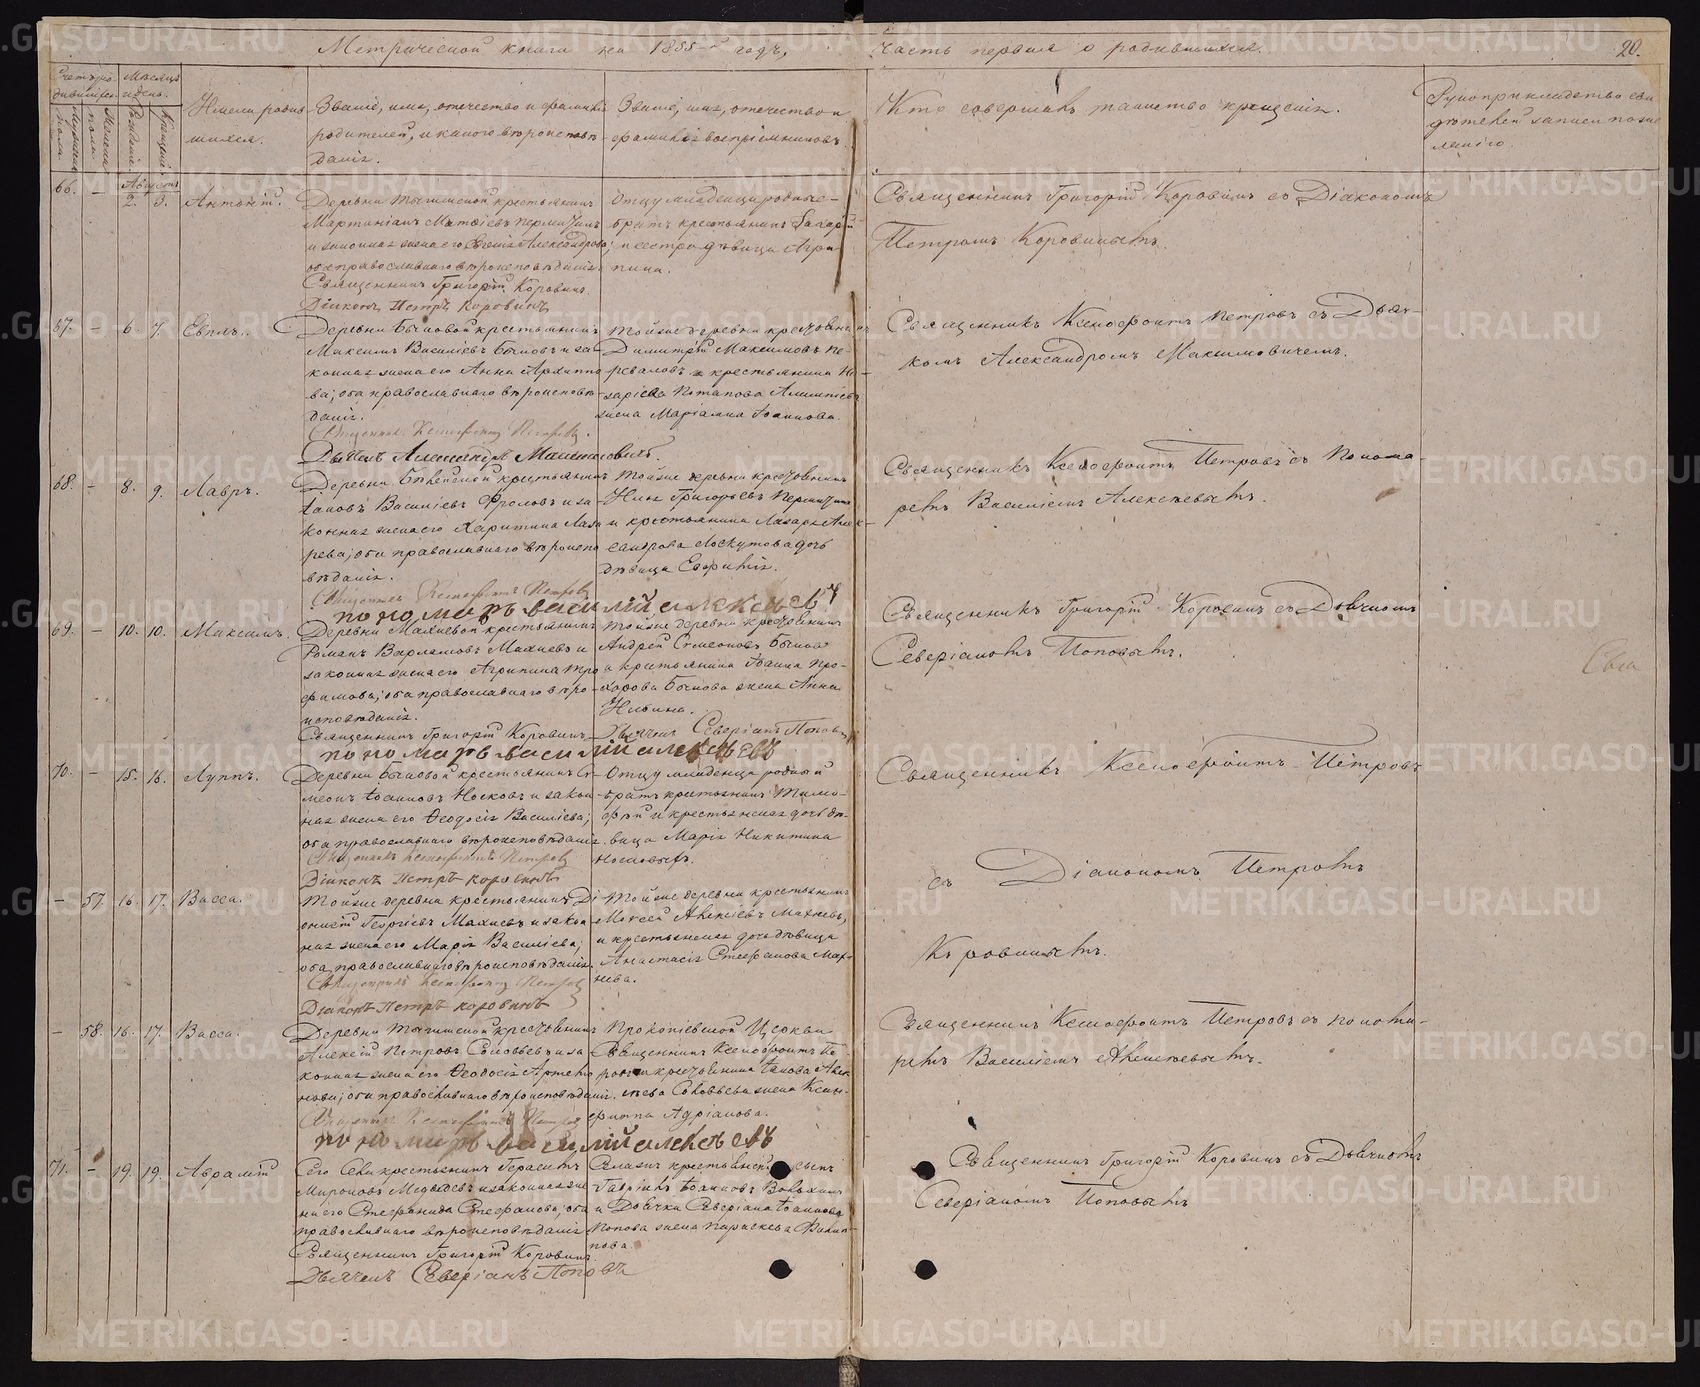 Метрической книги на 1855 годъ,
часть первая о родившихся.
20.
Счетъ ро-
дившихся.
Мѣсяцъ
и день.
Мужеска
пола.
Женска
пола.
Рожденія.
Крещенія.
Имена родив
шихся.
Званіе, имя, отечество и фамилія
родителей, и какого вѣроисповѣ
данія.
Званіе, имя, отечество и
фамилія воспріемниковъ.
Кто совершалъ таинство крещенія.
Рукоприкладство сви
дѣтелей записи по же
ланію.
66. –
Августъ
2. 3. Антоній.
Деревни крестьянинъ
Мартиніанъ Матѳіевъ
и законная жена его Евгенія Александрова;
оба православнаго вѣроисповѣданія.
Священникъ Григорій Коровинъ
Діаконъ Петръ Коровинъ
Отцу младенца родные
братъ крестьянинъ Захарій
и сестра дѣвица Агри
пина.
Священникъ Григорій Коровинъ съ Діакономъ
Петромъ Коровинымъ.
67. – 6. 7. Евплъ.
Деревни Бычковой крестьянинъ
Максимъ Василіевъ Бычковъ и за
конная жена его Анна Архиппо
ва; оба православнаго вѣроисповѣ
данія.
Священникъ Ксенофонтъ Петровъ.
Дьячекъ Александръ Максимовичъ.
Той же деревни крестьянинъ
Димитрій Максимовъ Пе-
реваловъ и крестьянина На-
зарія Потапова
жена Маріамна Іоаннова.
Священникъ Ксенофонтъ Петровъ съ Дьяч-
комъ Александромъ Максимовичемъ.
68. – 8. 9. Лавръ.
Деревни крестьянинъ
Іаковъ Василіевъ Фроловъ и за
конная жена его Харитина Лаза
рева; оба православнаго вѣроиспо
вѣданія.
Священникъ Ксенофонтъ Петровъ
пономарь василій алексѣевъ
Той же деревни крестьянинъ
Илья Григорьевъ
и крестьянина Лазаря Алек-
сандрова Лоскутова дочь
дѣвица Евфимія.
Священникъ Ксенофонтъ Петровъ съ Понома-
ремъ Василіемъ Алексѣевымъ.
69. – 10. 10. Максимъ.
Деревни Махневой крестьянинъ
Романъ Варламовъ Махневъ и
законная жена его Агрипина Тро
фимова; оба православнаго вѣро-
исповѣданія.
Священникъ Григорій Коровинъ
Дьячекъ Северіанъ Поповъ
пономарь василій алексѣевъ
Той же деревни крестьянинъ
Андрей Симеоновъ Бычковъ
и крестьянина Іоанна Про-
хорова Бычкова жена Анна
Никитина.
Священникъ Григорій Коровинъ съ Дьячкомъ
Северіаномъ Поповымъ.
Свя
70. – 15. 16. Луппъ.
Деревни Бычковой крестьянинъ Си-
меонъ Іоанновъ Носковъ и закон
ная жена его Ѳеодосія Василіева;
оба православнаго вѣроисповѣданія.
Священникъ Ксенофонтъ Петровъ
Діаконъ Петръ Коровинъ
Отцу младенца родный
братъ крестьянинъ Тимо-
фей и крестьянская дочь дѣ-
вица Марія Никитина
Носковыхъ.
Священникъ Ксенофонтъ Петровъ
съ Діакономъ Петромъ
Коровинымъ.
– 57. 16. 17. Васса.
Той же деревни крестьянинъ Ді
онисій Георгіевъ Махневъ и закон
ная жена его Марія Василіева;
оба православнаго вѣроисповѣданія.
Священникъ Ксенофонтъ Петровъ
Діаконъ Петръ Коровинъ
Той же деревни крестьянинъ
Моисей Алексіевъ Махневъ,
и крестьянская дочь дѣвица
Анастасія Стефанова Мах-
нева.
– 58. 16. 17. Васса.
Деревни крестьянинъ
Алексій Петровъ Соловьевъ и за
конная жена его Ѳеодосія Артемо
нова; оба православнаго вѣроисповѣданія.
Священникъ Ксенофонтъ Петровъ
пономарь василій алексѣевъ
Прокопіевской Церкви
Священникъ Ксенофонтъ Пе-
тровъ и крестьянина Іакова Алек
сѣева Соловьева жена Ксен-
фиппа Адріанова.
Священникъ Ксенофонтъ Петровъ съ понома-
ремъ Василіемъ Алексѣевымъ.
71. – 19. 19. Авраамій
Сего Села крестьянинъ Герасимъ
Мироновъ Медвѣдевъ и законная же
на его Стефанида Стефанова; оба
православнаго вѣроисповѣданія.
Священникъ Григорій Коровинъ.
Дьячекъ Северіанъ Поповъ
Гавріилъ Іоанновъ
и Дьячка Северіана Іоаннова
Попова жена Параскева Филип-
пова.
Священникъ Григорій Коровинъ съ Дьячкомъ
Северіаномъ Поповымъ
METRIKI.GASO-URAL.RU